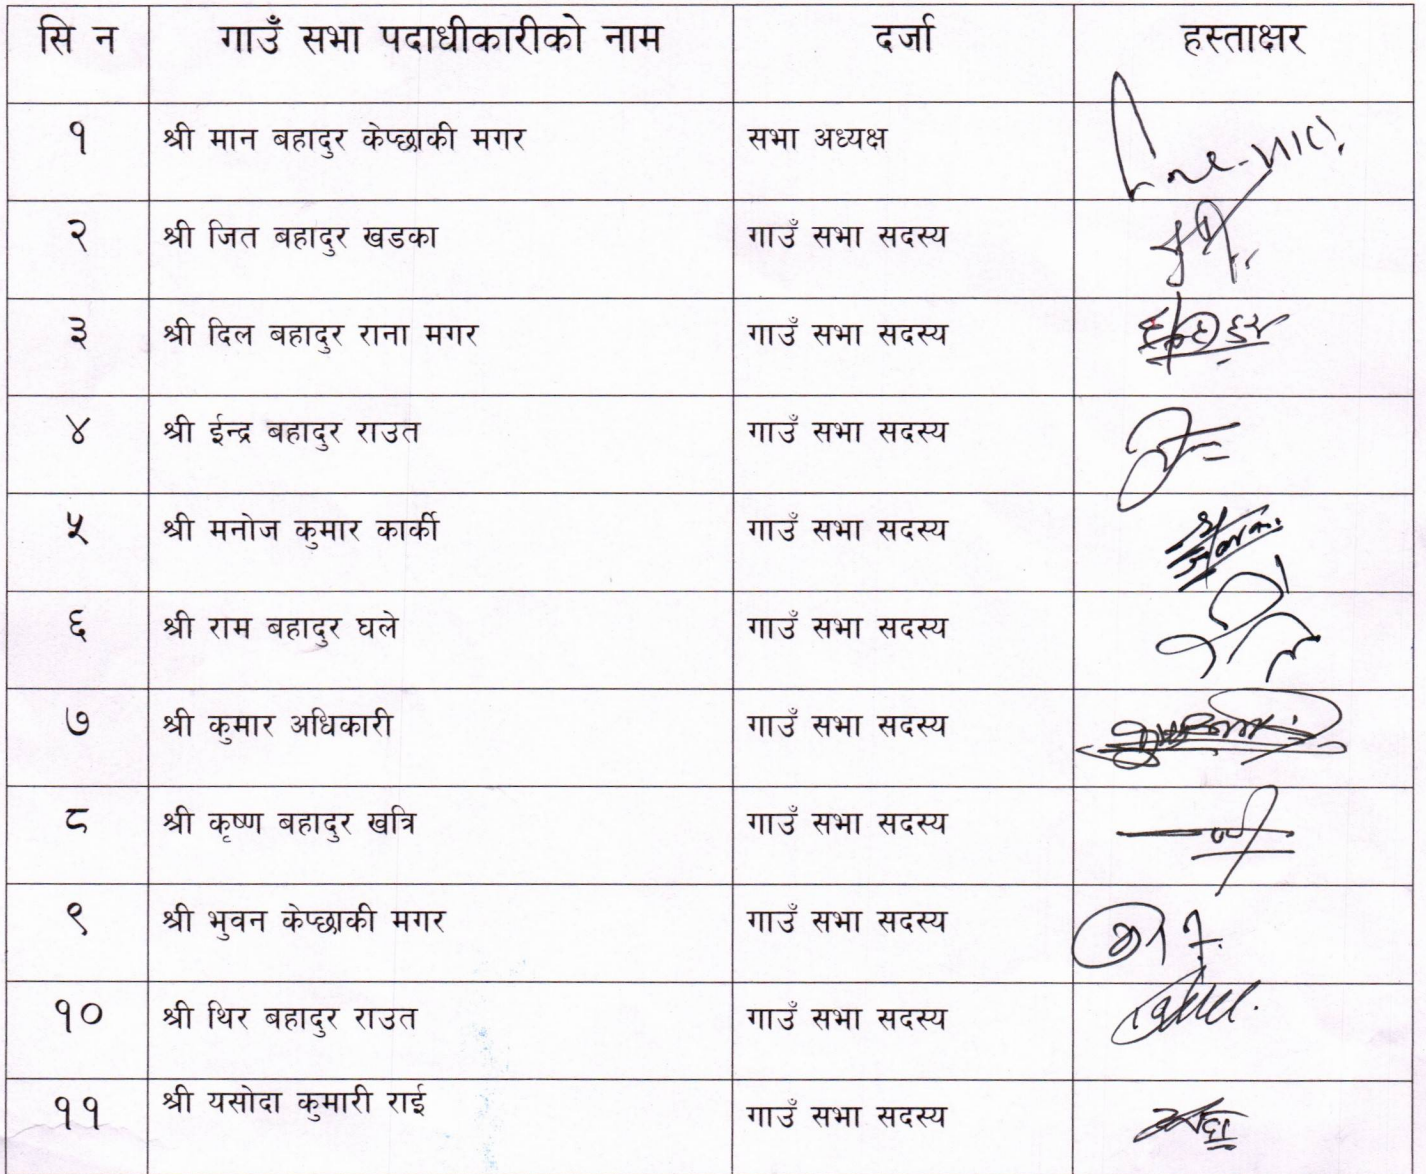 सि न गाउँ सभा पदाधीकारीको नाम दर्जा हस्ताक्षर
१ श्री मान बहादुर केप्छाकी मगर सभा अध्यक्ष
२ श्री जित बहादुर खडका गाउँ सभा सदस्य
३ श्री दिल बहादुर राना मगर गाउँ सभा सदस्य
४ श्री ईन्द्र बहादुर राउत गाउँ सभा सदस्य
५ श्री मनोज कुमार कार्की गाउँ सभा सदस्य
६ श्री राम बहादुर घले गाउँ सभा सदस्य
७ श्री कुमार अधिकारी गाउँ सभा सदस्य
८ श्री कृष्ण बहादुर खत्रि गाउँ सभा सदस्य
९ श्री भुवन केप्छाकी मगर गाउँ सभा सदस्य
१० श्री थिर बहादुर राउत गाउँ सभा सदस्य
११ श्री यसोदा कुमारी राई गाउँ सभा सदस्य